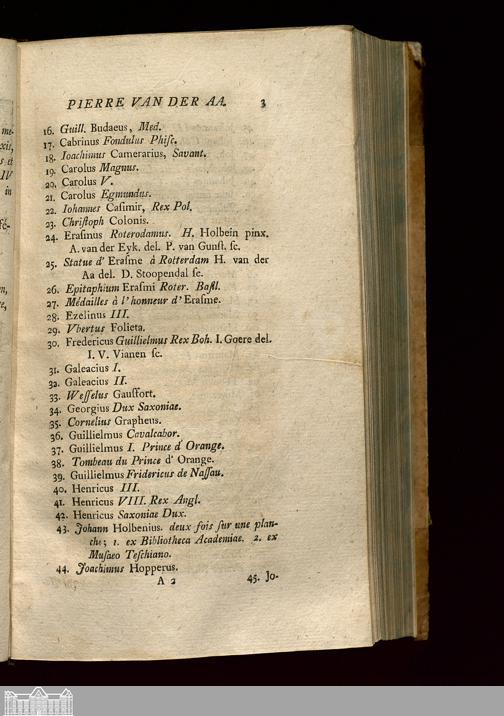 PIERRE VAN DER AA. 3
16. Guill. Budaeus, Med.
17. Cabrinus Fondulus Phiſc.
18. Ioachimus Camerarius, Savant.
19. Carolus Magnus.
20. Carolus V.
21. Carolus Egmundus.
22. Iohannes Caſimir, Rex Pol.
23. Chriſtoph Colonis.
24. Eraſmus Roterodamus. H. Holbein pinx.
A. van der Eyk. del. P. van Gunſt. ſc.
25. Statue d' Eraſme à Rotterdam H. van der
Aa del. D. Stoopendal ſc.
26. Epitaphium Eraſmi Roter. Baſil.
27. Médailles à l'honneur d'Eraſme.
28. Ezelinus III.
29. Vbertus Folieta.
30. Fredericus Guillielmus Rex Boh. I. Goere del.
I. V. Vianen ſc.
31. Galeacius I.
32. Galeacius II.
33. Weſſelus Gausfort.
34. Georgius Dux Saxoniae.
35. Cornelius Grapheus.
36. Guillielmus Cavalcabor.
37. Guillielmus I. Prince d'Orange.
38. Tombeau du Prince d'Orange.
39. Guillielmus Fridericus de Naſſau.
40. Henricus III.
41. Henricus VIII. Rex Angl.
42. Henricus Saxoniae Dux.
43. Johann Holbenius. deux fois ſur une plan-
che; 1. ex Bibliotheca Academiae. 2. ex
Muſaeo Teſchiano.
44. Joachimus Hopperus.
A 2 45. Jo-